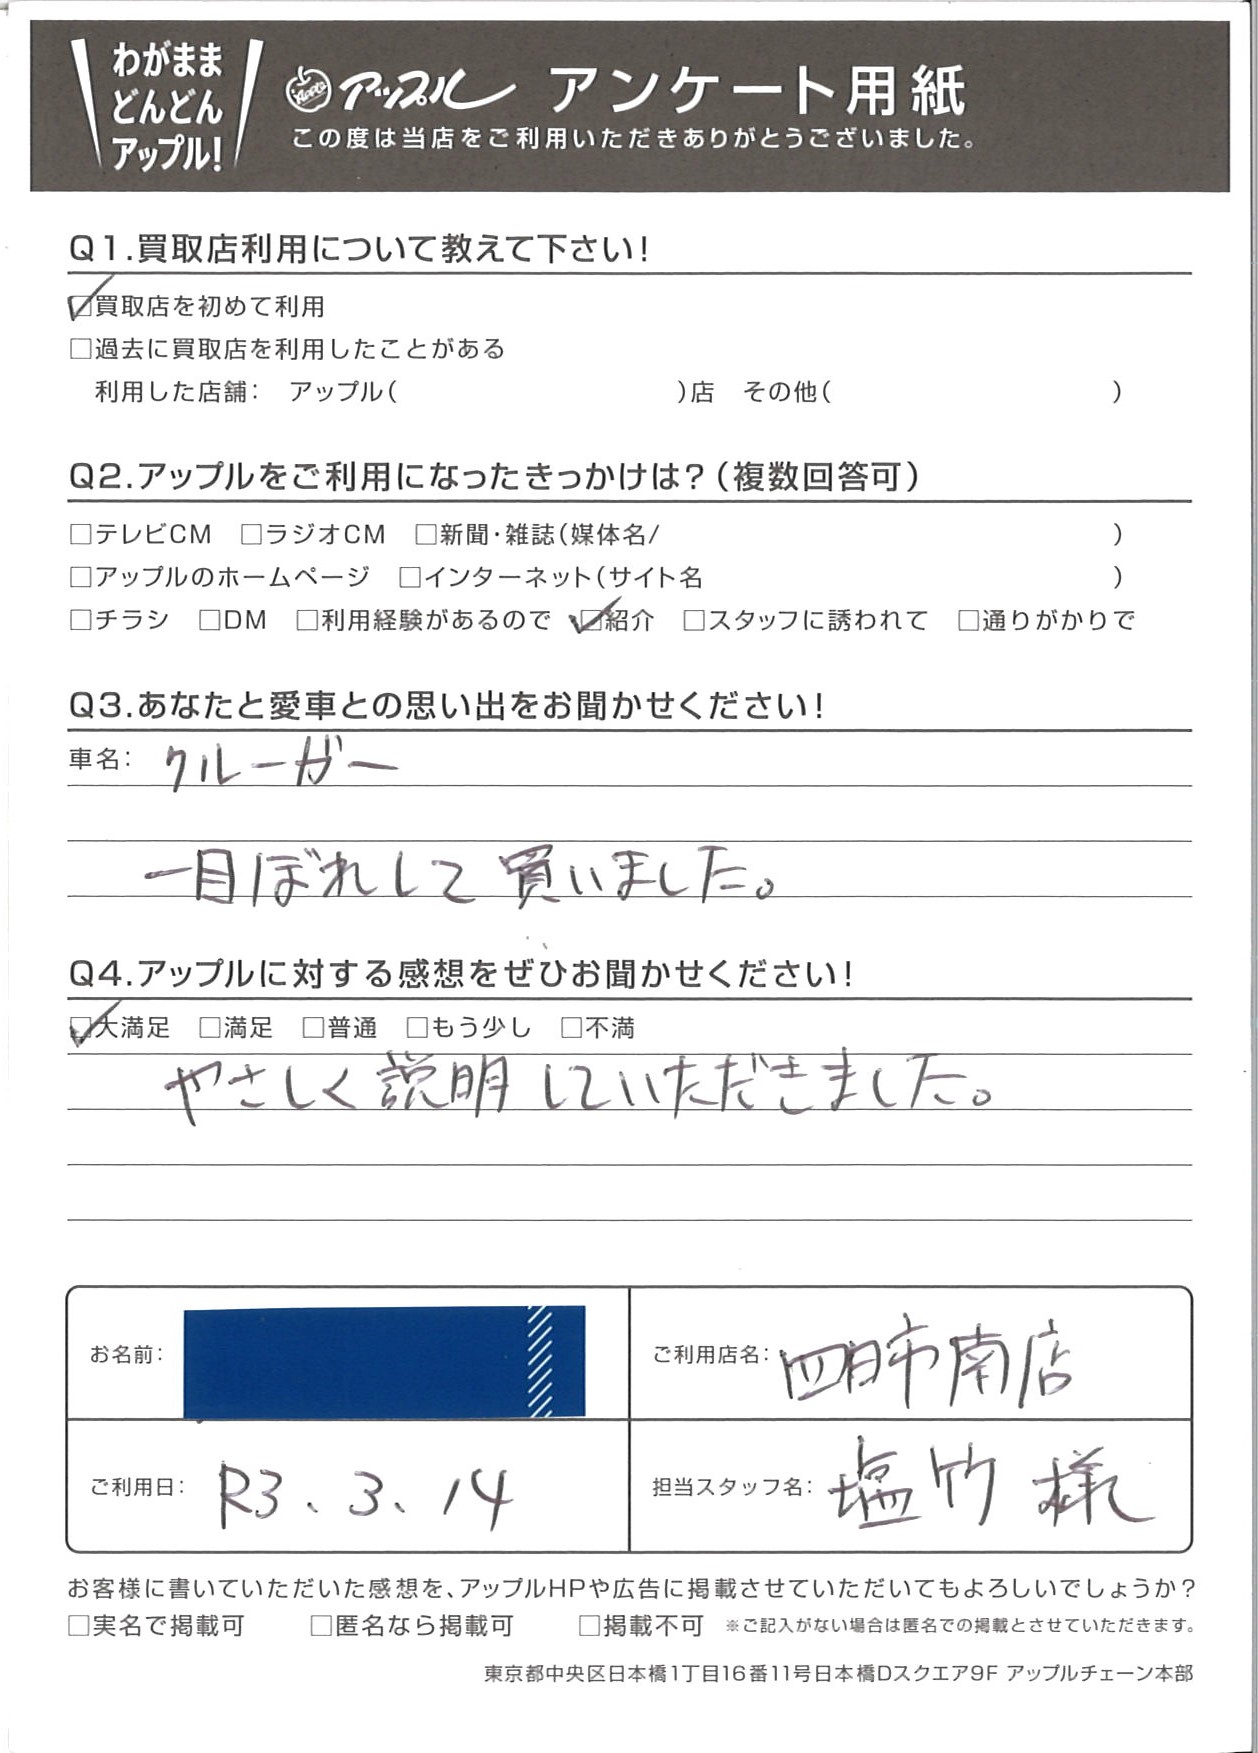 わがまま
どんどん
アップル!
Apple アップル アンケート用紙
この度は当店をご利用いただきありがとうございました。
Q1.買取店利用について教えて下さい!
☑買取店を初めて利用
□過去に買取店を利用したことがある
利用した店舗: アップル( )店 その他( )
Q2.アップルをご利用になったきっかけは?(複数回答可)
□テレビCM □ラジオCM □新聞・雑誌(媒体名/ )
□アップルのホームページ □インターネット(サイト名 )
□チラシ □DM □利用経験があるので ☑紹介 □スタッフに誘われて □通りがかりで
Q3.あなたと愛車との思い出をお聞かせください!
車名: クルーガー
一目ぼれして買いました。
Q4.アップルに対する感想をぜひお聞かせください!
☑大満足 □満足 □普通 □もう少し □不満
やさしく説明していただきました。
お名前:
ご利用店名: 四日市南店
ご利用日: R3、3、14
担当スタッフ名: 塩竹 様
お客様に書いていただいた感想を、アップルHPや広告に掲載させていただいてもよろしいでしょうか?
□実名で掲載可 □匿名なら掲載可 □掲載不可 ※ご記入がない場合は匿名での掲載とさせていただきます。
東京都中央区日本橋1丁目16番11号日本橋Dスクエア9F アップルチェーン本部